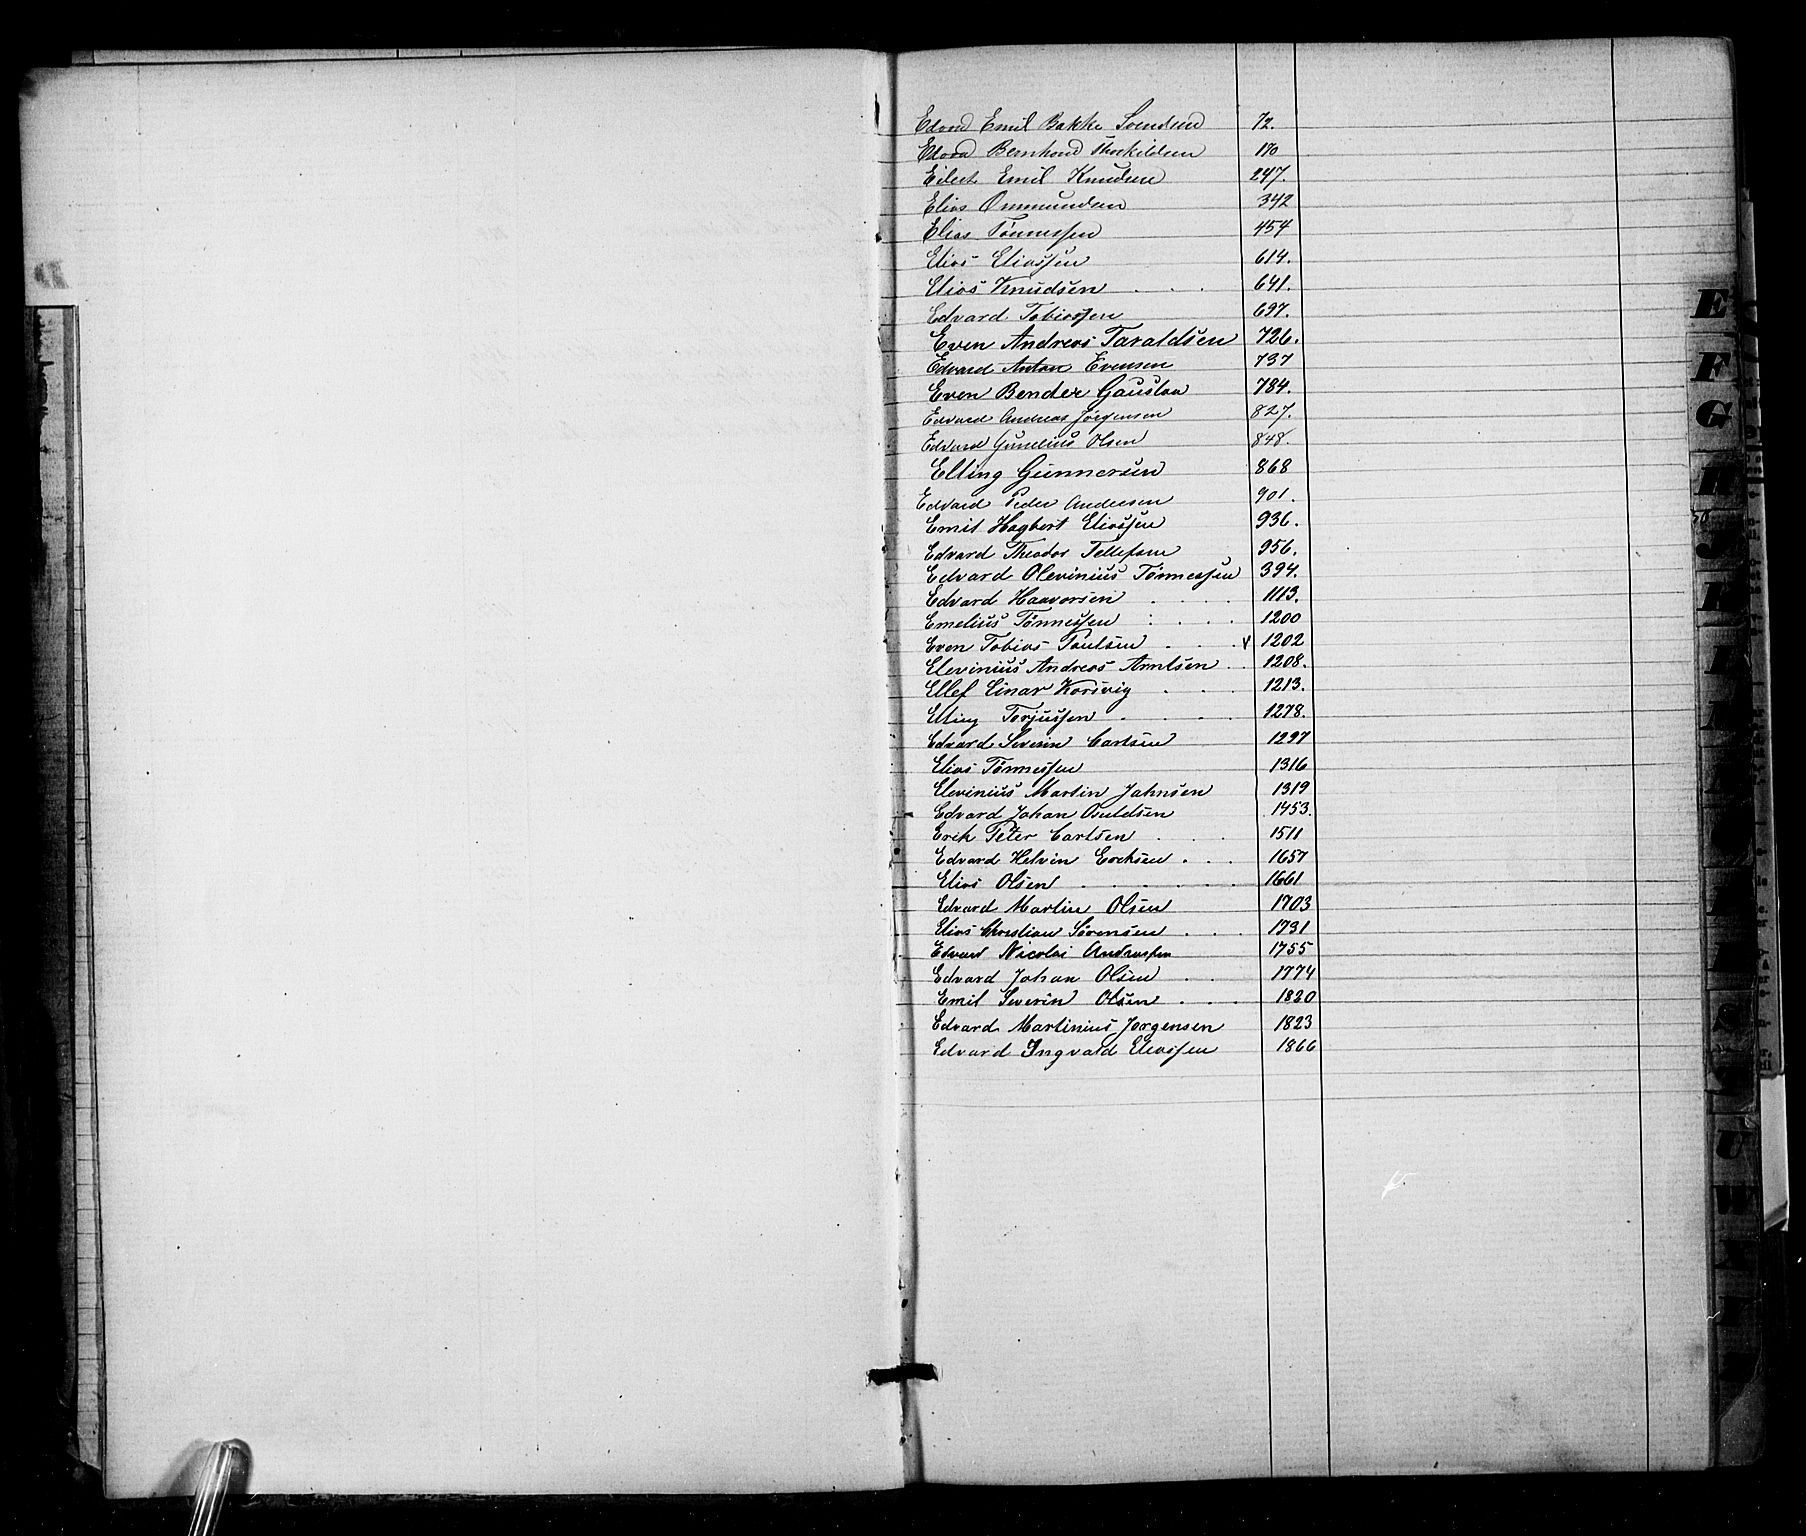 Edvard Emil Bakke Svendsen 72.
Edvard Bernhard Thorkildsen 170
Eilert Emil Knudsen 247.
Elias Ommundsen 342
Elias Tönnessen 454
Elias Eliassen 614.
Elias Knudsen . . . 641.
Edvard Tobiassen 697.
Even Andreas Taraldsen 726.
Edvard Anton Evensen 737
Even Bender Gaustaa 784.
Edvard Andreas Jörgensen 827.
Edvard Gunelius Olsen 848.
Elling Gunnersen 868
Edvard Peder Andersen 901.
Emil Hagbert Eliassen 936.
Edvard Theodor Tellefsen 956.
Edvard Olevinius Tönnessen 394.
Edvard Haavorsen . . . . 1113.
Emelius Tönnessen . . . . 1200
Even Tobias Poulsen . . . x 1202
Elevinius Andreas Arntsen . . 1208.
Ellef Einar Korsvig . . . 1213.
Elling Torjussen . . . . 1278.
Edvard Severin Carlsen 1297
Elias Tönnessen 1316
Elevinius Martin Jahnsen 1319
Edvard Johan Osuldsen 1453.
Erik Peter Carlsen . . 1511
Edvard Helvin Erchsen . . . 1657
Elias Olsen . . . . . . 1661
Edvard Martin Olsen 1703
Elias Christian Sörensen . . . 1731
Edvard Nicolai Andreassen 1755
Edvard Johan Olsen . . 1774
Emil Severin Olsen . . . 1820
Edvard Martinius Jorgensen 1823
Edvard Ingvald Eliassen 1866
E
F
G
H
J
K
L
M
N
O
P
R
S
T
U
W